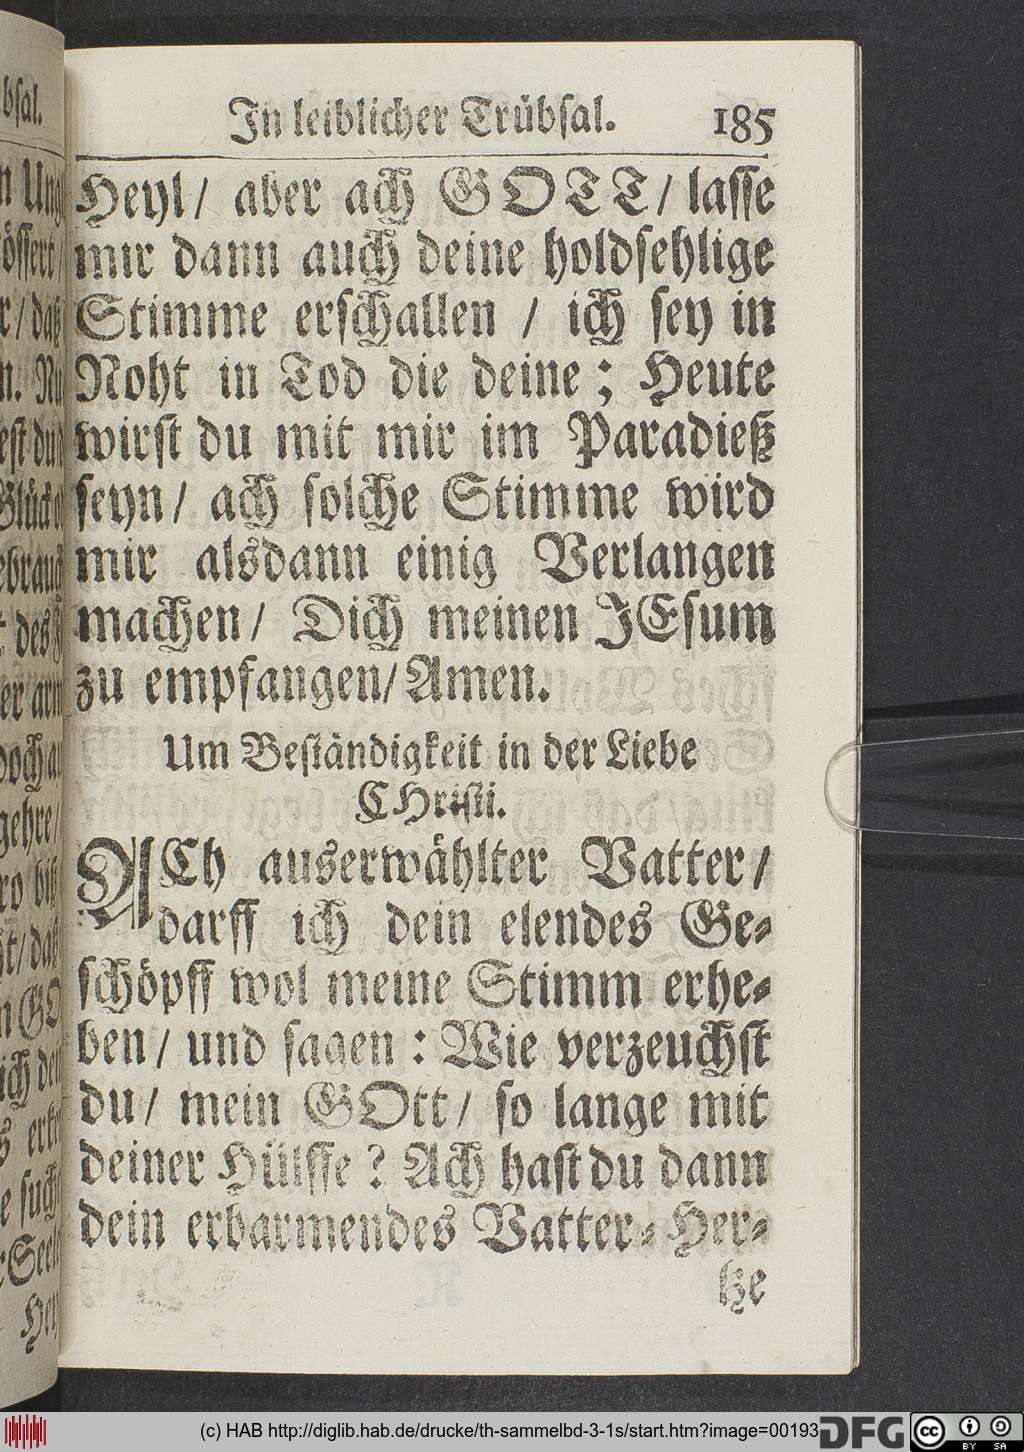 In leiblicher Trübsal. 185
Heyl/ aber ach GOTT/ lasse
mir dann auch deine holdsehlige
Stimme erschallen / ich sey in
Noht in Tod die deine; Heute
wirst du mit mir im Paradieß
seyn/ ach solche Stimme wird
mir alsdann einig Verlangen
machen/ Dich meinen JEsum
zu empfangen/ Amen.
Um Beständigkeit in der Liebe
CHristi.
ACh auserwählter Vatter/
darff ich dein elendes Ge-
schöpff wol meine Stimm erhe-
ben/ und sagen: Wie verzeuchst
du/ mein GOtt/ so lange mit
deiner Hülffe? Ach hast du dann
dein erbarmendes Vatter-Her-
tze
(c) HAB http://diglib.hab.de/drucke/th-sammelbd-3-1s/start.htm?image=00193
DFG
cc BY SA